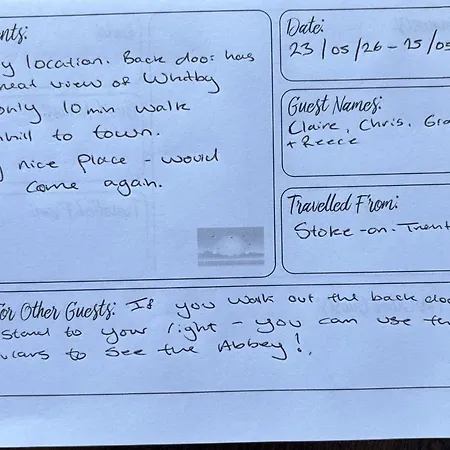 nts:
y location. Back door has
eat view of Whitby
only 10 min walk
nhill to town.
nice place - would
come again.
Date:
23/05/26 - 25/05
Guest Names:
Claire, Chris, Gra
+ Reece
Travelled From:
Stoke-on-Trent
For Other Guests: If you walk out the back doo
stand to your right - you can use the
ulars to see the Abbey!